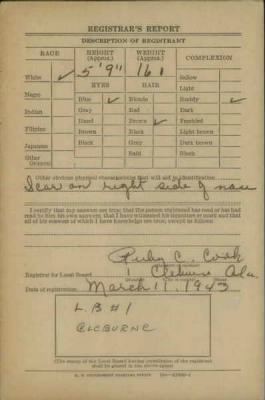 REGISTRAR'S REPORT
DESCRIPTION OF REGISTRANT
RACE HEIGHT (Approx.) WEIGHT (Approx.) COMPLEXION
White ✓ 5' 9" 161 Sallow
Light
Negro EYES HAIR Ruddy ✓
Blue ✓ Blonde Dark
Indian Gray Red Freckled
Filipino Hazel Brown ✓ Light brown
Brown Black Dark brown
Japanese Black Gray Black
Other Bald
Other obvious physical characteristics that will aid in identification
Scar on right side of nose
I certify that my answers are true; that the person registered has read or has had
read to him his own answers; that I have witnessed his signature or mark and that
all of his answers of which I have knowledge are true, except as follows:
Ruby C. Cook
Registrar for Local Board 1 Cleburne Ala.
Date of registration March 11, 1943
L.B #1
CLEBURNE
(The stamp of the Local Board having jurisdiction of the registrant
shall be placed in the above space.)
U. S. GOVERNMENT PRINTING OFFICE